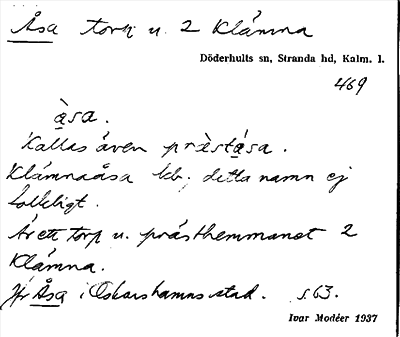 Åsa torp u. 2 Klämna
Döderhults sn, Stranda hd, Kalm. l.
469
å̀sa.
Kallas även prä̀stǻsa.
Klämnaåsa kb; detta namn ej
folkligt.
Är ett torp u. prästhemmanet 2
Klämna.
Jfr Åsa i Oskarshamns stad. s. 63.
Ivar Modéer 1937